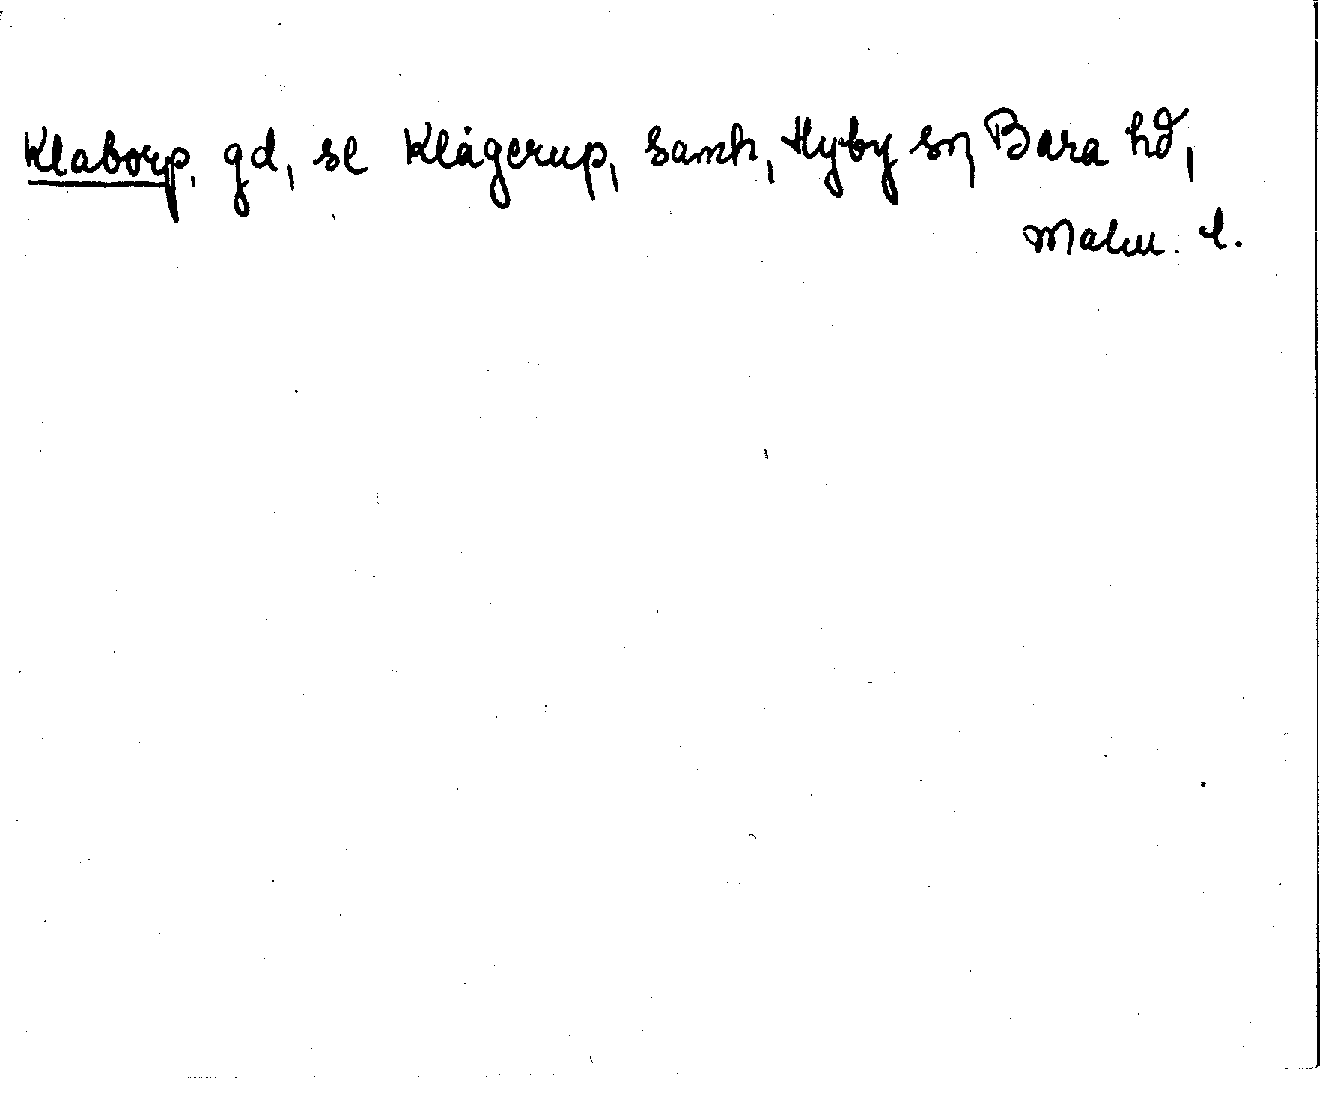 Klaborp, gd, se Klågerup, samh, Hyby sn, Bara hd,
Malm. l.